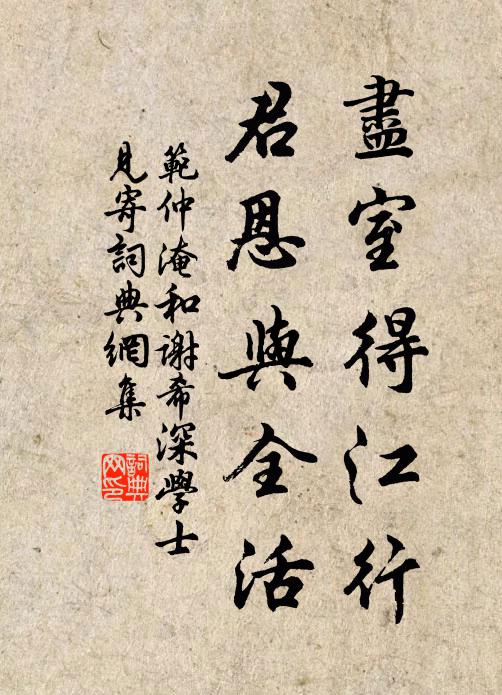 盡室得江行
君恩與全活
範仲淹和謝希深學士
見寄詞典網集
詞典網印